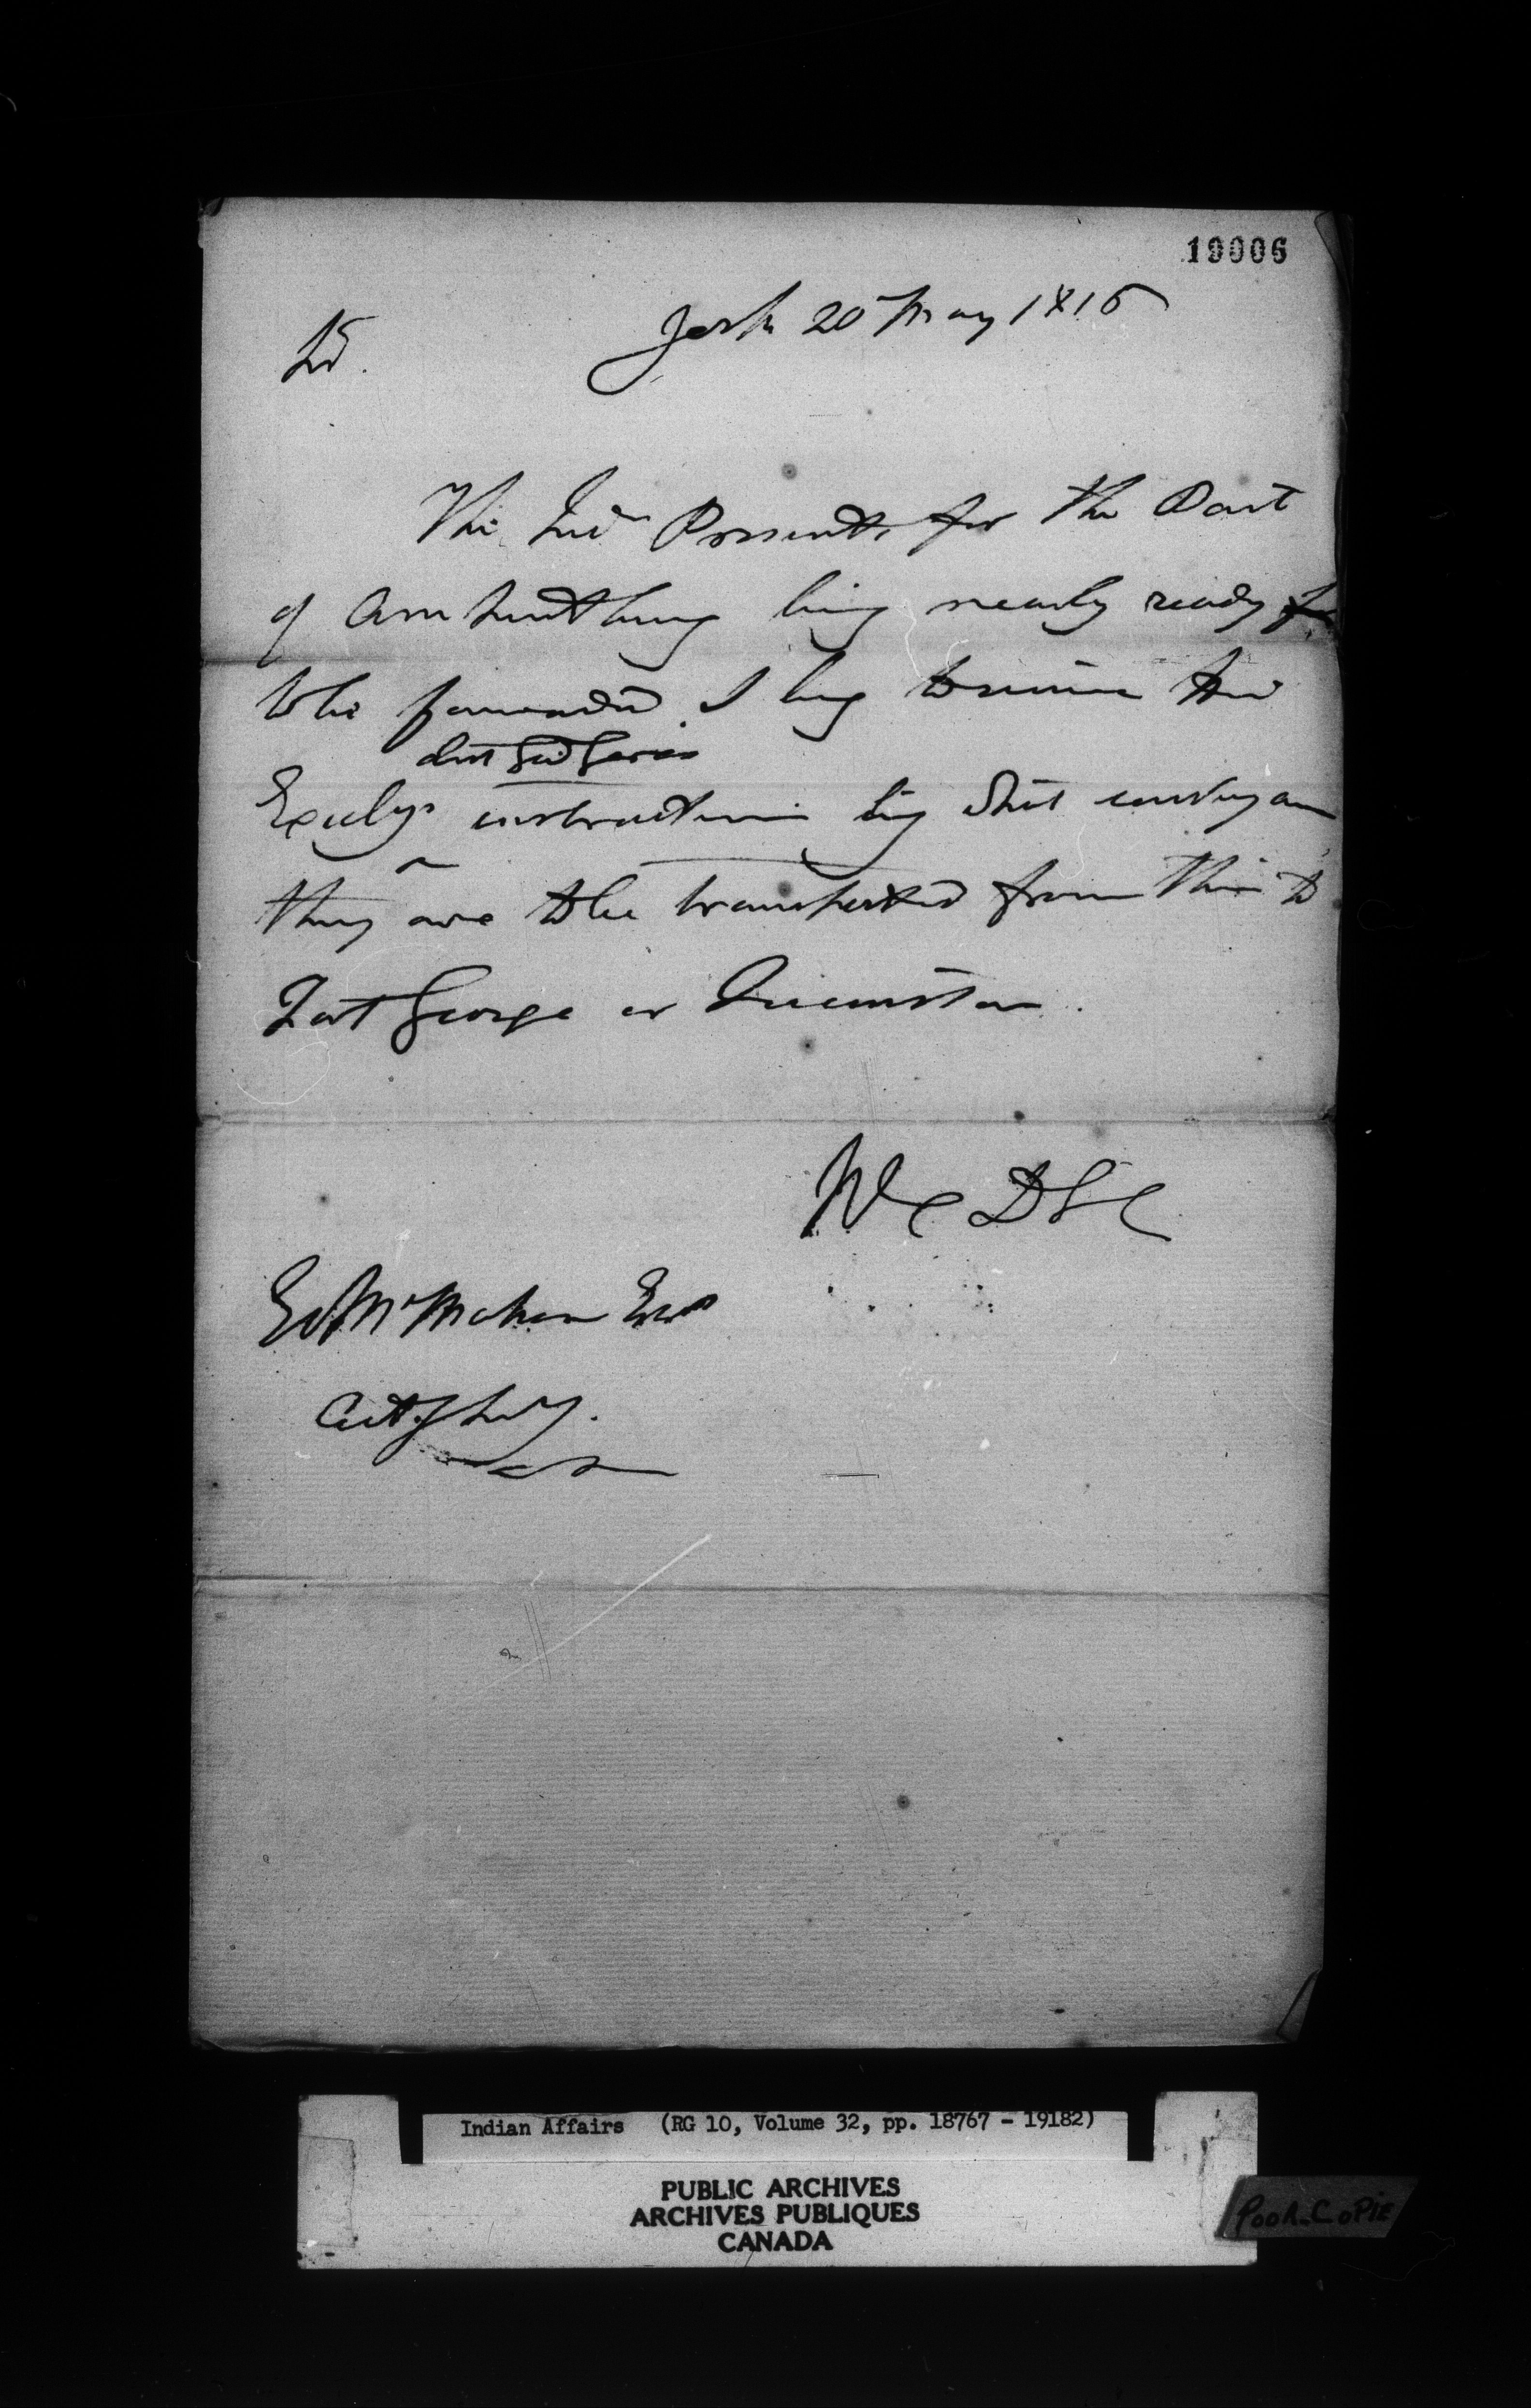 19006
York 20 May 1816
Sir.
The Ind Presents for the Post
of Amherstburg being nearly ready
to be forwarded I beg to receive His
Lieut Govr Gores
Excelys instructions by what conveyance
they are to be transported from this to
Fort George or Queenston.
WC DSG
Ed McMahon Esqr
Indian Affairs (RG 10, Volume 32, pp. 18767 - 19182)
PUBLIC ARCHIVES
ARCHIVES PUBLIQUES
CANADA
POOR-COPIE